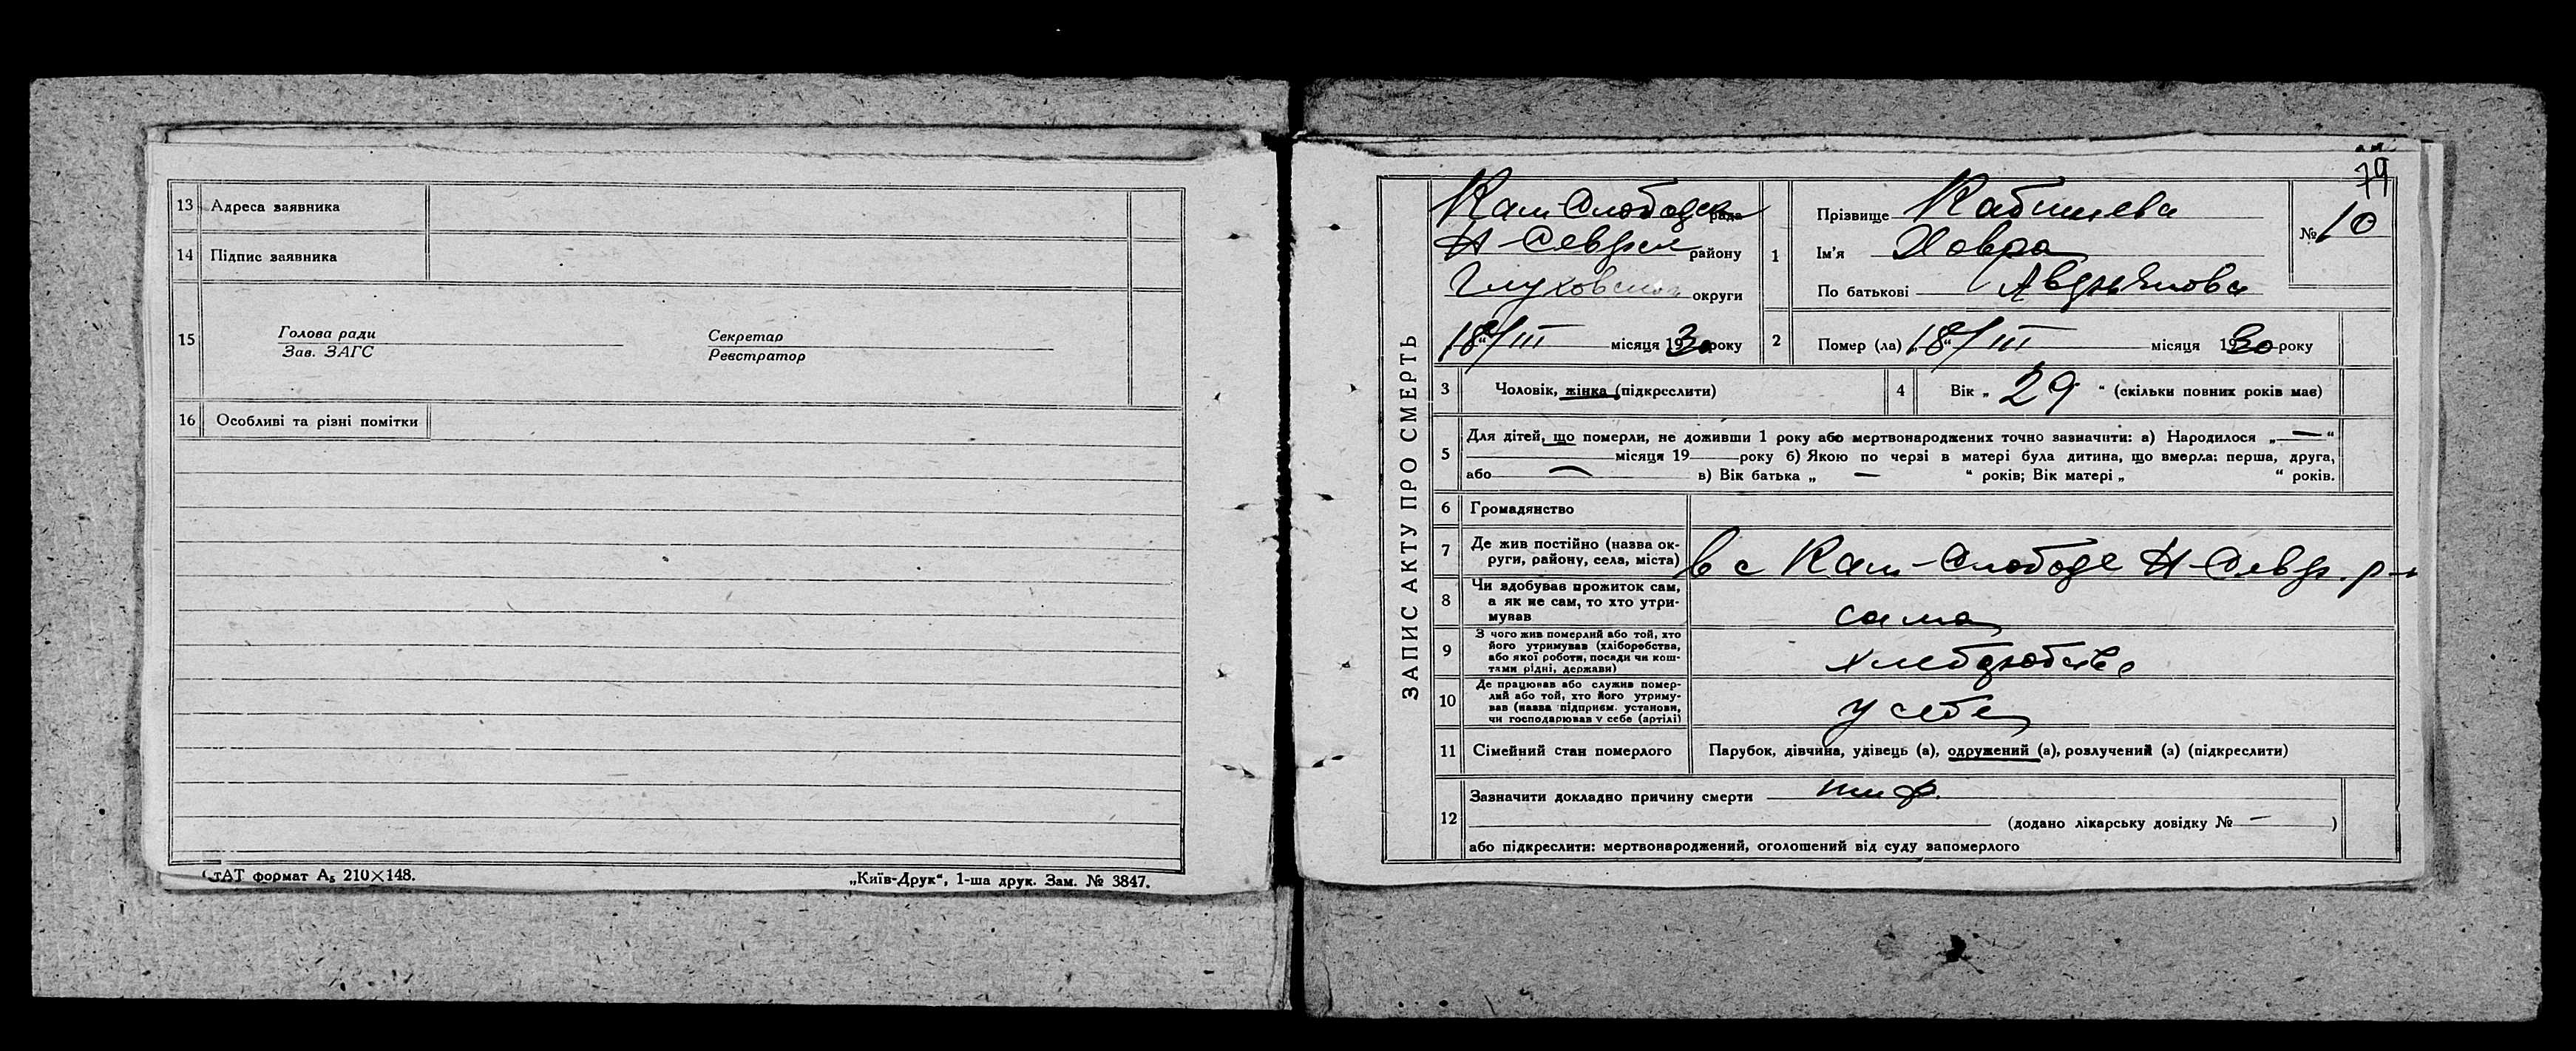 13 Адреса заявника
14 Підпис заявника
15
Голова ради
Зав. ЗАГС
Секретар
Реєстратор
16 Особливі та різні помітки
СтАТ формат А₅ 210×148.
„Київ-Друк“, 1-ша друк. Зам. № 3847.
79
ЗАПИС АКТУ ПРО СМЕРТЬ
Кам Слободск рада
Н-Севрск району
Глуховской округи
„18“/III місяця 1930 року
1 Прізвище
Ім'я Ховра
По батькові
№ 10
2 Помер (ла) „18“/III місяця 1930 року
3 Чоловік, жінка (підкреслити)
4 Вік „ 29 “ (скільки повних років мав)
5 Для дітей, що померли, не доживши 1 року або мертвонароджених точно зазначити: а) Народилося „ — “
місяця 19 року б) Якою по черзі в матері була дитина, що вмерла: перша, друга,
або — в) Вік батька „ — “ років; Вік матері „ “ років.
6 Громадянство
7 Де жив постійно (назва ок-
руги, району, села, міста)
в с Кам-Слободе Н-Севр. р-н
8 Чи здобував прожиток сам,
а як не сам, то хто утри-
мував
сама
9 З чого жив померлий або той, хто
його утримував (хліборобства,
або якої роботи, посади чи кош-
тами рідні, держави)
10 Де працював або служив помер-
лий або той, хто його утриму-
вав (назва підприєм. установи,
чи господарював у себе (артілі)
у себе
11 Сімейний стан померлого
Парубок, дівчина, удівець (а), одружений (а), розлучений (а) (підкреслити)
12 Зазначити докладно причину смерти тиф.
(додано лікарську довідку № — )
або підкреслити: мертвонароджений, оголошений від суду запомерлого